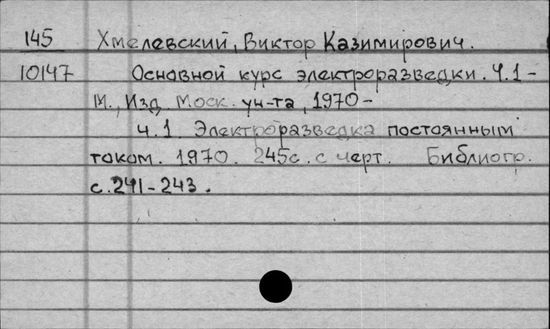 145 Хмелевский, Виктор Казимирович.
10147 Основной курс электроразведки. Ч.1 -
М., Изд. Моск. ун-та, 1970 -
ч.1 Электроразведка постоянным
током. 1970. 245с. с черт. Библиогр.
с.241-243.